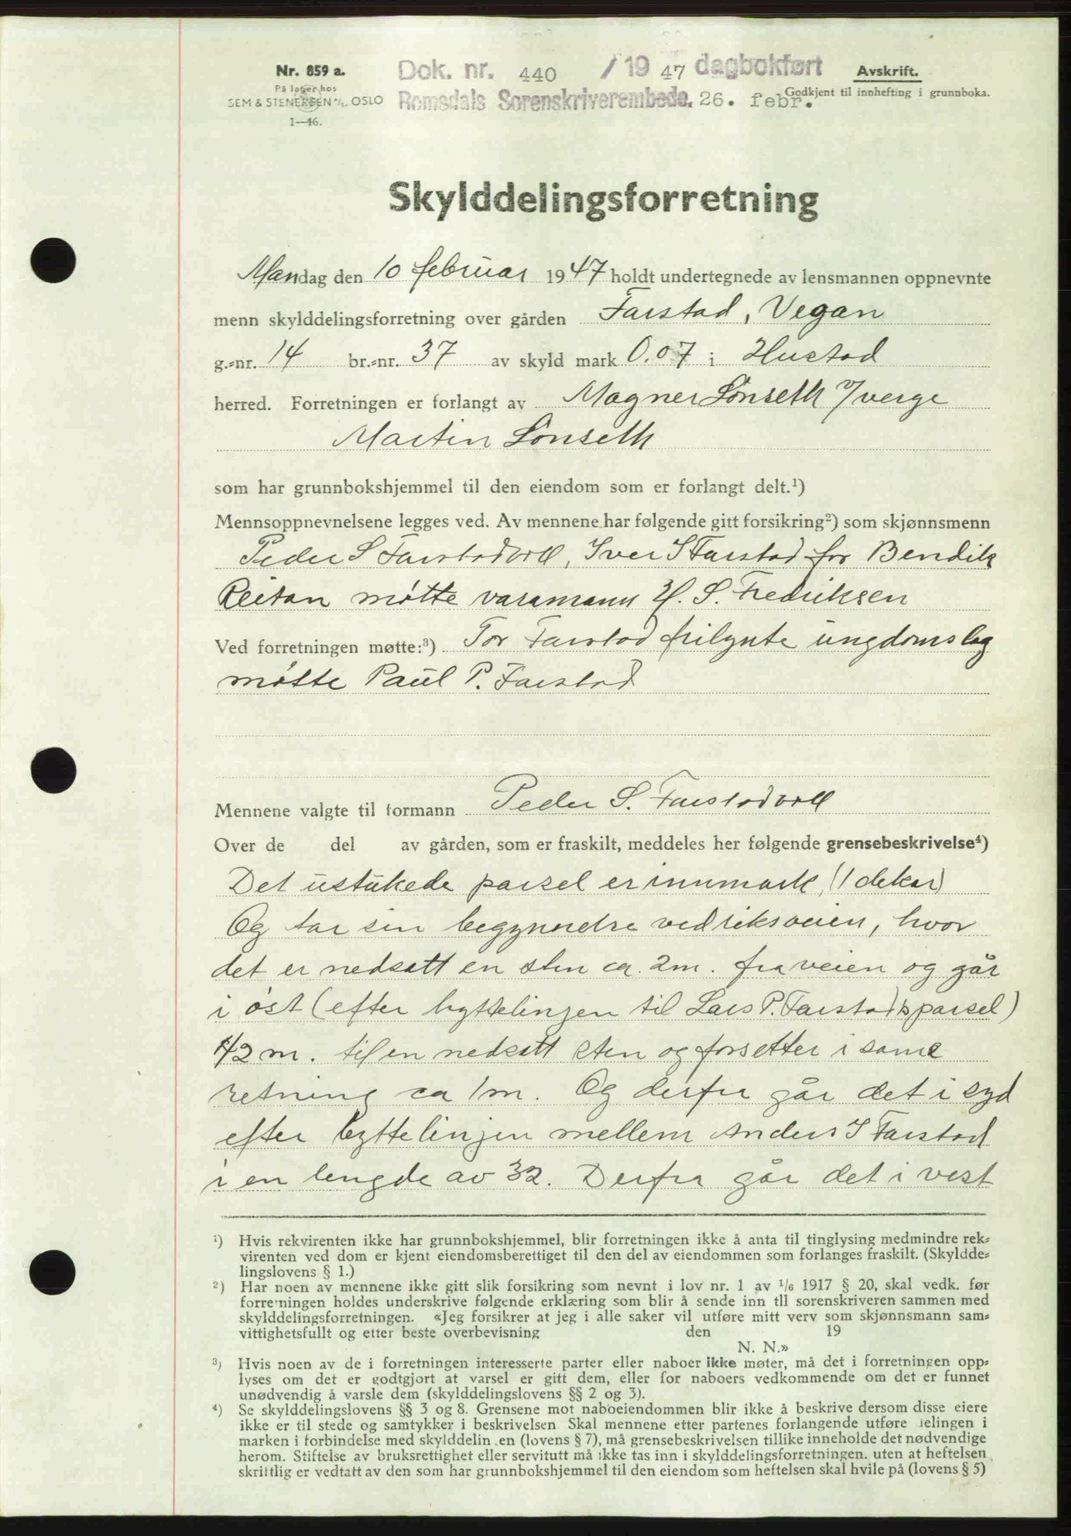 Nr. 859 a.
På lager hos
SEM & STENERSEN A/S, OSLO
1—46.
Dok. nr. 440 / 19 47 dagbokført
Romsdals Sorenskriverembede. 26. febr.
Avskrift.
Godkjent til innhefting i grunnboka.
Skylddelingsforretning
Mandag den 10 februar 1947 holdt undertegnede av lensmannen oppnevnte
menn skylddelingsforretning over gården Farstad, Vegan
g.-nr. 14 br.-nr. 37 av skyld mark 0.07 i Hustad
herred. Forretningen er forlangt av Magner Lønseth v/verge
Martin Lønseth
som har grunnbokshjemmel til den eiendom som er forlangt delt.¹)
Mennsoppnevnelsene legges ved. Av mennene har følgende gitt forsikring²) som skjønnsmenn
Peder S Farstadvoll, Iver I Farstad for Bendik
Reitan møtte varamann H. S. Fredriksen
Ved forretningen møtte:³) For Farstad frilynte ungdomslag
møtte Paul P. Farstad
Mennene valgte til formann Peder S. Farstadvoll
Over de del av gården, som er fraskilt, meddeles her følgende grensebeskrivelse⁴)
Det utstukede parsel er innmark, (1 dekar)
Og tar sin begynnelse ved riksveien, hvor
det er nedsatt en sten ca. 2m. fra veien og går
i øst (efter byttelinjen til Lars P. Farstads parsel)
42 m. til en nedsatt sten og forsetter i same
retning ca 1m. Og derfra går det i syd
efter byttelinjen mellem Anders I Farstad
i en lengde av 32. Derfra går det i vest
¹) Hvis rekvirenten ikke har grunnbokshjemmel, blir forretningen ikke å anta til tinglysing medmindre rek-
virenten ved dom er kjent eiendomsberettiget til den del av eiendommen som forlanges fraskilt. (Skyldde-
lingslovens § 1.)
²) Har noen av mennene ikke gitt slik forsikring som nevnt i lov nr. 1 av 1/6 1917 § 20, skal vedk. før
forretningen holdes underskrive følgende erklæring som blir å sende inn til sorenskriveren sammen med
skylddelingsforretningen. «Jeg forsikrer at jeg i alle saker vil utføre mitt verv som skjønnsmann sam-
vittighetsfullt og etter beste overbevisning den 19
N. N.»
³) Hvis noen av de i forretningen interesserte parter eller naboer ikke møter, må det i forretningen opp-
lyses om det er godtgjort at varsel er gitt dem, eller for naboers vedkommende om det er funnet
unødvendig å varsle dem (skylddelingslovens §§ 2 og 3).
⁴) Se skylddelingslovens §§ 3 og 8. Grensene mot naboeiendommen blir ikke å beskrive dersom disse eiere
ikke er til stede og samtykker i beskrivelsen Skal mennene etter partenes forlangende utføre delingen i
marken i forbindelse med skylddelin en (lovens § 7), må grensebeskrivelsen tillike inneholde det nødvendige
herom. Stiftelse av bruksrettighet eller servitutt må ikke tas inn i skylddelingsforretningen. uten at heftelsen
skriftlig er vedtatt av den som har grunnbokshjemmel til den eiendom som heftelsen skal hvile på (lovens § 5)